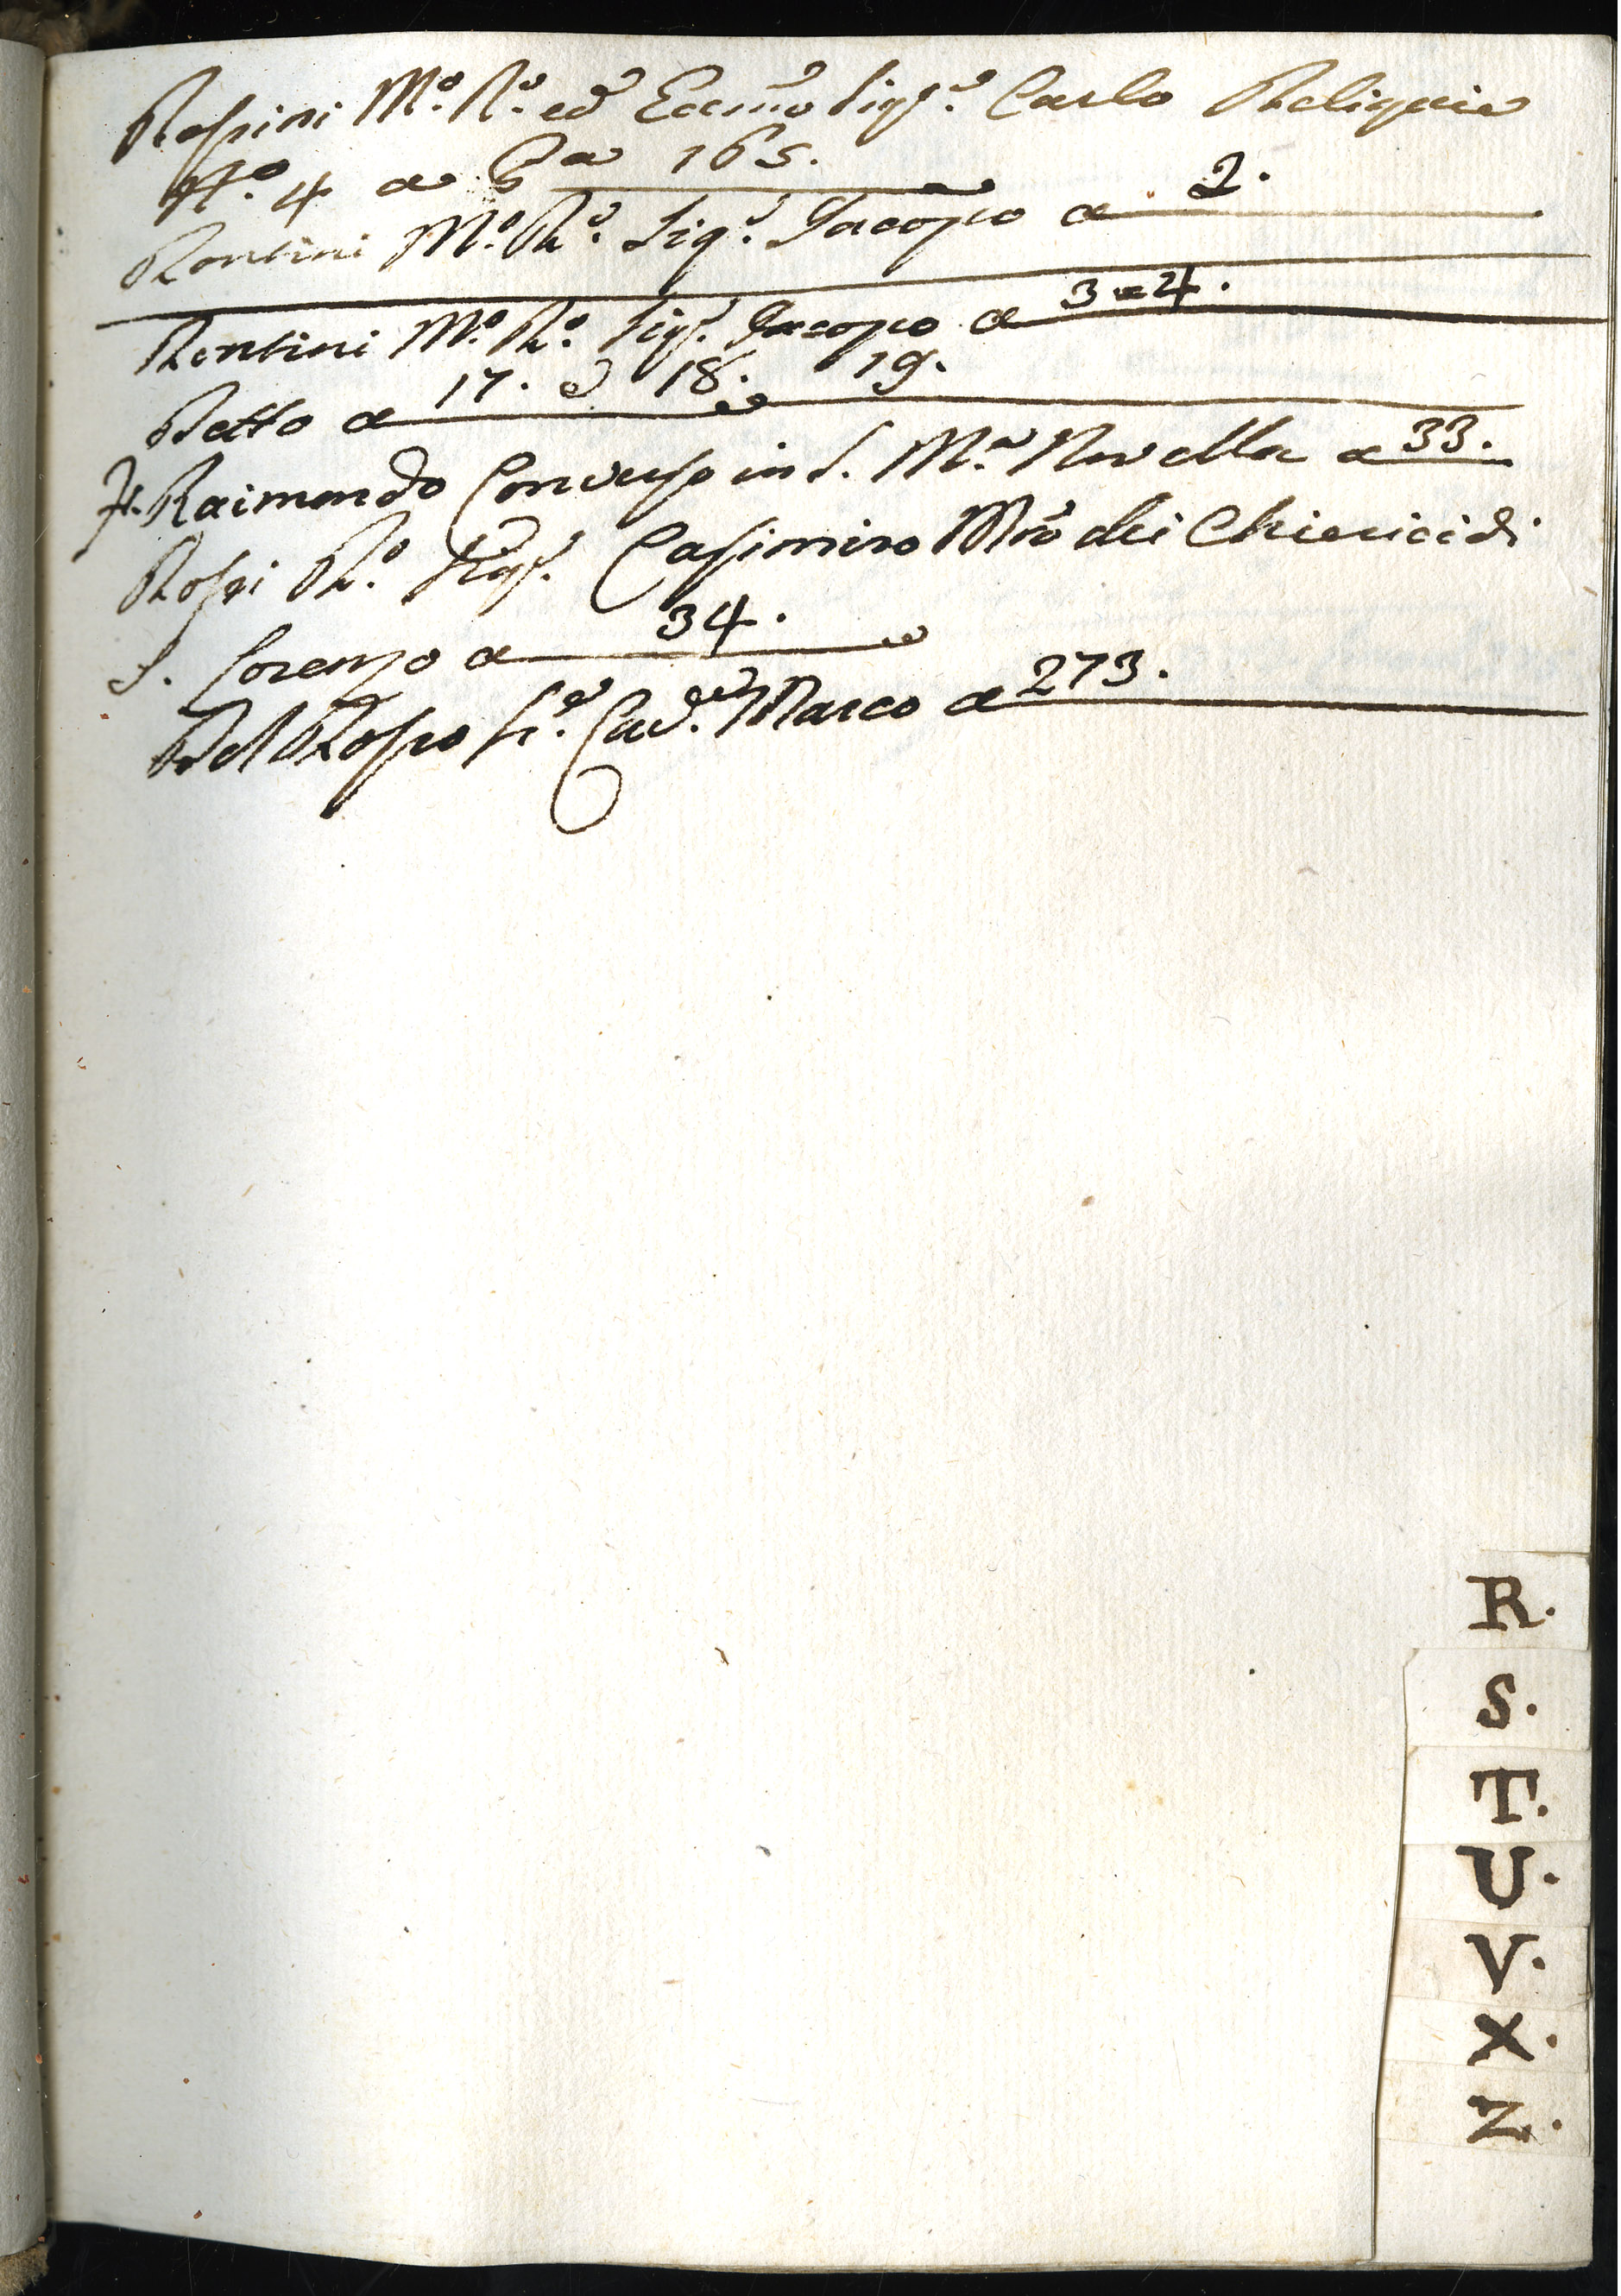 Rossini M.º R.º ed Eccmõ Sigr.e Carlo Reliquie
N.º 4 a Ca 165.
Rontini M.º R.º Sigr. Jacopo a 2.
Rontini M.º R.º Sigr. Jacopo a 3 e 4.
Detto a 17. e 18. 19.
Fr. Raimondo Converso in S. M.a Novella a 33.
Rossi R.º Sigr. Casimiro Mrõ dei Chierici di
S. Lorenzo a 34.
Del Rosso Sr.e Cav.e Marco a 273.
R.
S.
T.
U.
V.
X.
Z.